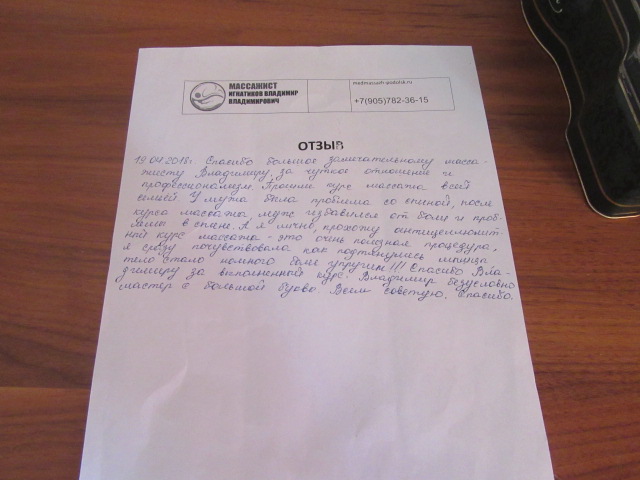 МАССАЖИСТ
ИГНАТИКОВ ВЛАДИМИР
ВЛАДИМИРОВИЧ
medmassach-podolsk.ru
+7(905)782-36-15
ОТЗЫВ
19.04.2018г Спасибо большое замечательному масса-
жисту Владимиру, за чуткое отношение и
профессионализм. Прошли курс массажа всей
семьей. У мужа была проблема со спиной, после
курса массажа, муж избавился от боли и проб-
лемы в спине. А я лично, прохожу антицеллюлит-
ный курс массажа - это очень полезная процедура,
я сразу почувствовала как подтянулись мышцы
тело стало намного более упругим!!! Спасибо Вла-
димиру за выполненный курс. Владимир безусловно
мастер с большой буквы. Всем советую. Спасибо.